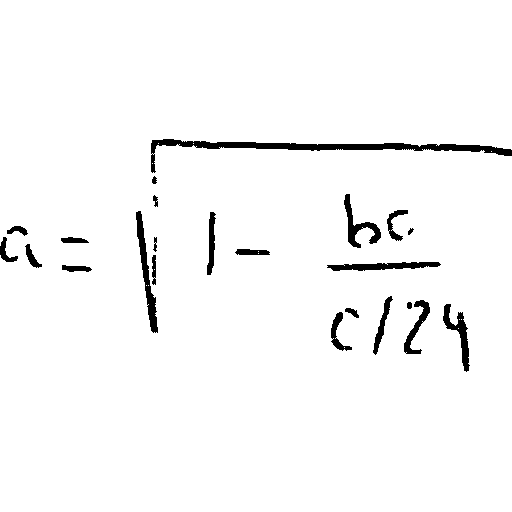 a = √(1 - bc / (c/24))